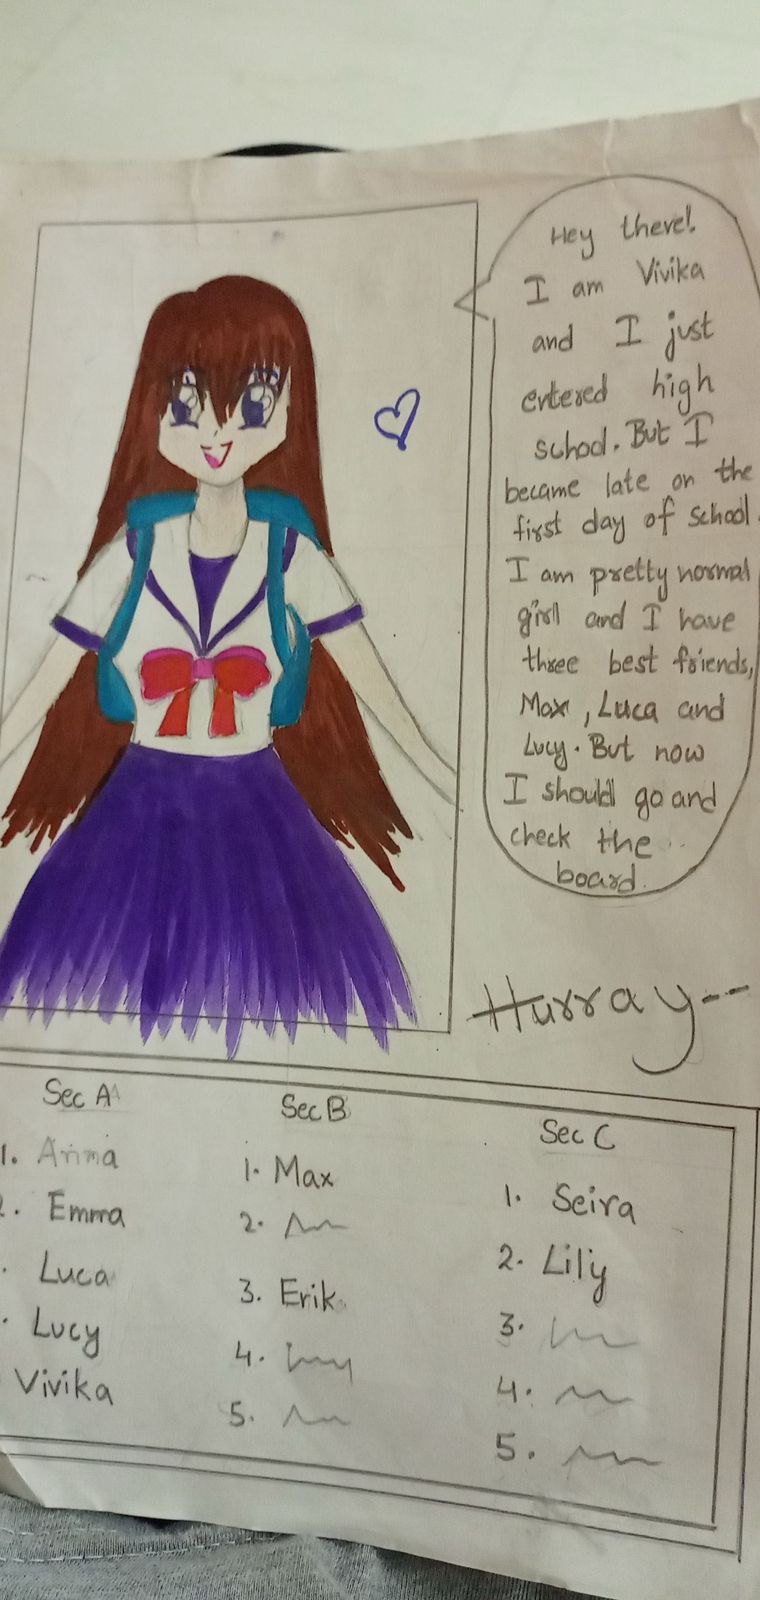 Hey there!
I am Vivika
and I just
entered high
school. But I
became late on the
first day of school.
I am pretty normal
girl and I have
three best friends,
Max, Luca and
Lucy. But now
I should go and
check the
board.
Hurray--
Sec A
1. Anma
2. Emma
. Luca
. Lucy
Vivika
Sec B
1. Max
2.
3. Erik
4.
5.
Sec C
1. Seira
2. Lily
3.
4.
5.